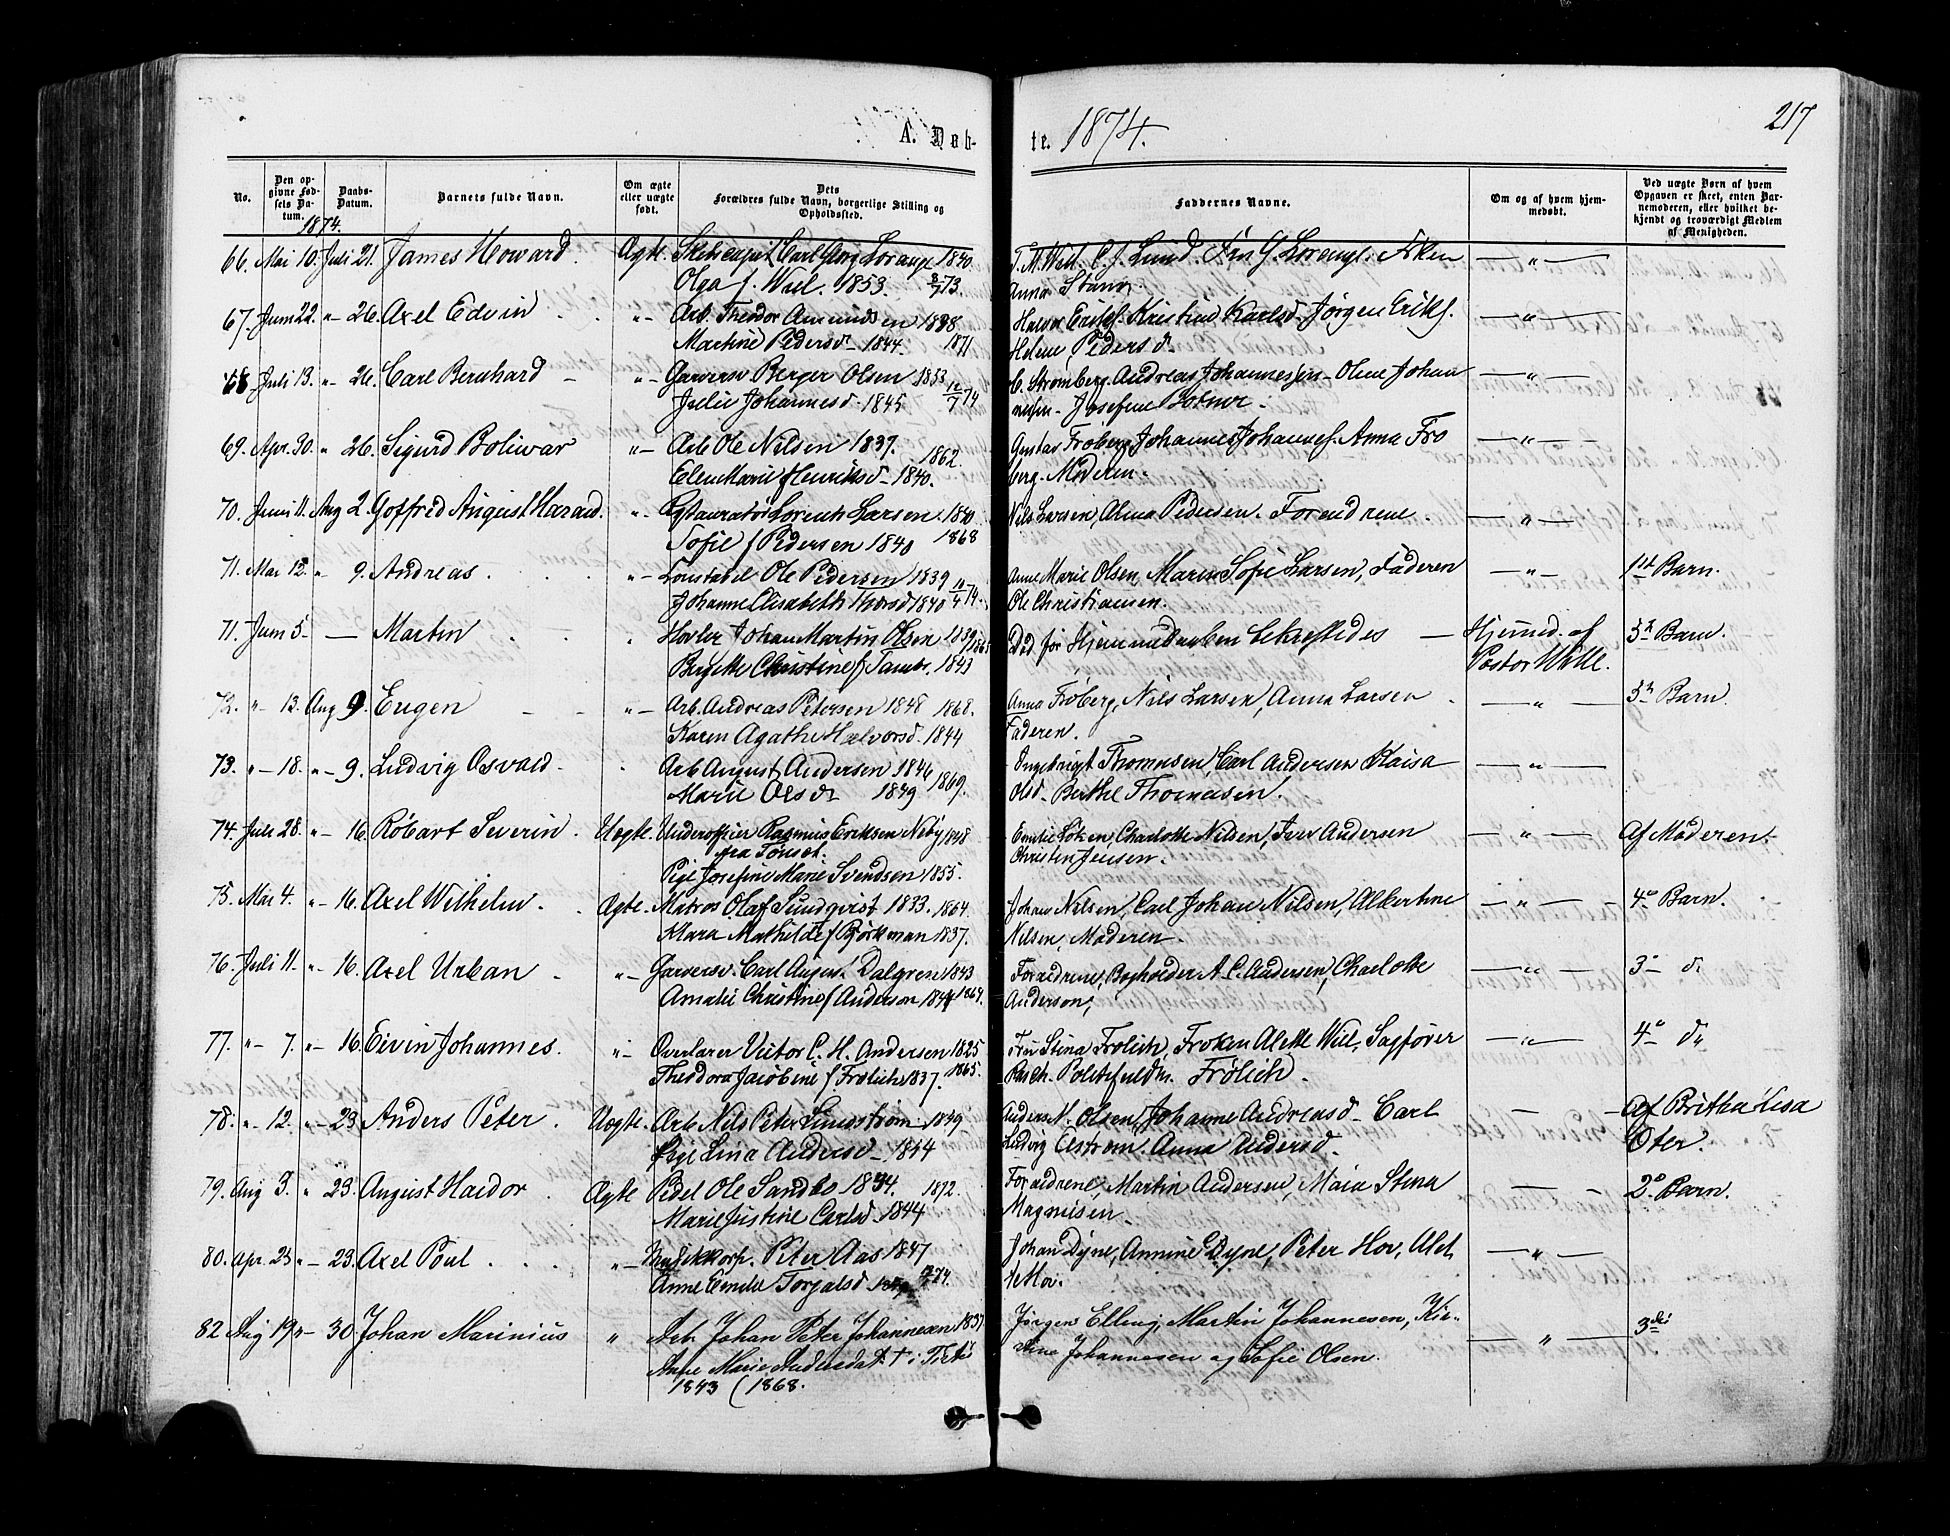 217
A. Døb-
te. 1874.
No.
Den op-
givne Fød-
sels Da-
tum.
1874.
Daabs-
Datum.
Barnets fulde Navn.
Om ægte
eller uægte
født.
Dets
Forældres fulde Navn, borgerlige Stilling og
Opholdssted.
Faddernes Navne.
Om og af hvem hjem-
medøbt.
Ved uægte Børn af hvem
Opgaven er skeet, enten Bar-
nemoderen, eller hvilket be-
kjendt og troværdigt Medlem
af Menigheden.
66. Mai 10. Juli 21. James Howard. Ægte. Carl Georg Lorange 1840. C. J. Lund. Lorange. — " —
Olga f. Wiel. 1853. 8/7 73. Anna
67. Juni 22. "- 26. Axel Edvin "- Arb. Theodor Amundsen 1838 Halvor Kristine Karlsd. Jørgen Eriks. — " —
Martine Pedersd. 1844. 1871 Helene Pedersd.
68 Juli 13. "- 26. Carl Bernhard "- Garversv. Berger Olsen 1853 C. Stromberg. Andreas Johannesen - Oline Johan — " —
Julie Johannesd. 1845 12/7 74 nesen - Josefine Bolmer.
69. Apr. 30. " 26. Sigurd Boliwar "- Arb Ole Nilsen 1837. Gustav Frøberg, Johannes Johannes. Anna Frø — " —
Elen Marie Henriksd - 1840. 1862. berg. Moderen.
70. Juni 11. Aug 2. Goffred August Harald. "- Restauratør Lorents Larsen 1840 Nils Larsen, Alma Pedersen. Forældrene. — " —
Sofie f Pedersen 1840 1868
71. Mai 12. " 9. Andreas. "- Constabel Ole Pedersen 1839 Anne Marie Olsen, Maren Sofie Larsen, Faderen — " — 1st Barn.
Johanne Elisabeth Thorsd 1840 4 74. Ole Christiansen.
71. Juni 5 — Martin " Høvler Johan Martin Olsen 1839 Død før Hjemmedaaben bekræftedes — Hjemmed. af 5te Barn.
Bergitte Christine f Jambs. 1843 Pastor Wille.
72. "- 13. Aug 9. Eugen "- Arb. Andreas Petersen 1848 1868. Anna Frøberg, Nils Larsen, Anna Larsen — " — 3te Barn
Karen Agathe Halvorsd. 1844 Faderen.
73. "- 18. "- 9. Ludvig Osvald Arb August Andersen 1846 Ingebrigt Thomesen, Carl Andersen — " —
Marie Olsd 1849 1869. Olsd. Berthe Thomesen.
74. Juli 28. "- 16. Robart Severin. Uægte. Underoffisier Rasmus Eriksen Neby 1848 Emilie Løken, Charlotte Nilsen, Iver Andersen — " — Af Moderen.
fra Tønset. Christen Jensen.
Pige Josefine Marie Svendsen 1855.
75. Mai 4. "- 16. Axel Wilhelm. Ægte. Matros Olaf Sundqvist 1833. 1864. Johan Nilsen, Carl Johan Nilsen, Albertine — " — 4e Barn.
Klara Mathilde f Bjorkman 1837. Nilsen, Moderen.
76. Juli 11. "- 16. Axel Urban "- Garversv. Carl August Dalgren 1843 Forældrene, Bogholder A. C. Andersen, Charlotte — " — 3e do
Amalie Christine f Anderson 1844 1869. Anderson,
77. "- 7. "- 16. Eivin Johannes. "- Overlærer Victor C. H. Andersen 1825 Fru Stina Frølich, Frøken Alette Wiel, Sagfører — " — 4e do
Theodora Jacobine f. Frølich 1837. 1865. Politifuldm. Frølich.
78. "- 12. "- 23. Anders Peter. Uægte. Arb Nils Peter Lindstrøm 1849 Anders N. Olsen, Johanne Andreasd - Carl — — Af Britha Lisa
Pige Lina Andreasd - 1844 Ludvig Alstrom. Anna Andersd. Øter.
79. Aug 3. " 23. August Haldor. Ægte Pedel Ole Sandbo 1834. 1872. Forældrene, Martin Andersen, Maia Stina — " — 2e Barn.
Marie Justine Carlsd. 1844 Magnusen.
80. Apr. 23 "- 23. Axel Poul "- Musikkorp. Peter Aas 1847 Johan Dyne, Annine Dyne, Peter Hov, Alet — " —
Anne Emelie Torgalsd 74. te Hov.
82 Aug 19 "- 30. Johan Marinius " Arb. Johan Peter Johannesen 1837 Jørgen Elling, Martin Johannesen, Kir- — " — 3die
Anne Marie Andersdat. † i Tistedalen stina Johannesen og Sofie Olsen.
1843 (1868.